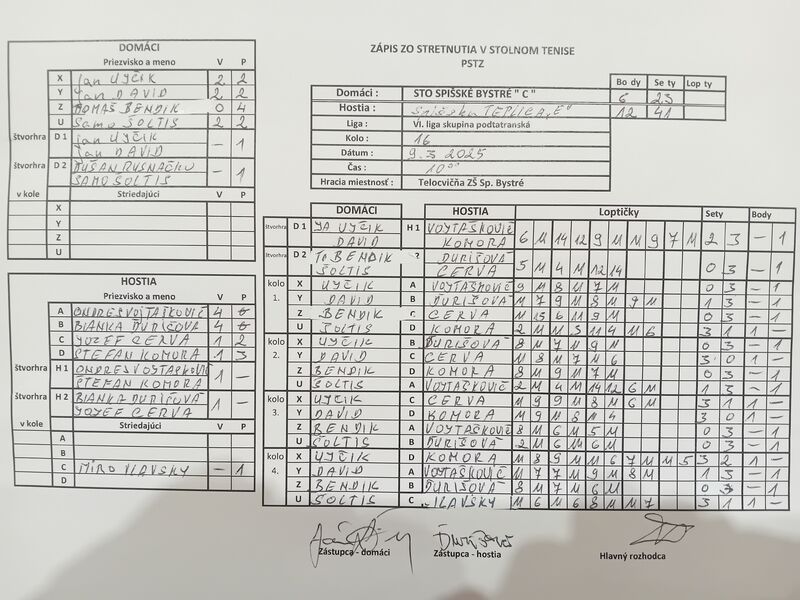 ZÁPIS ZO STRETNUTIA V STOLNOM TENISE
PSTZ
DOMÁCI
Priezvisko a meno V P
X Jan UYČIK 2 2
Y Jan DAVID 2 2
Z TOMAŠ BENDIK 0 4
U Samo ŠOLTIS 2 2
štvorhra D 1 Jan UYČIK
Jan DAVID – 1
štvorhra D 2 DUŠAN RUSNAČKO
SAMO ŠOLTIS – 1
v kole Striedajúci V P
X
Y
Z
U
HOSTIA
Priezvisko a meno V P
A ONDREJ VOJTAŠKOVIČ 4
B BIANKA ĎURIŠOVA 4
C JOZEF CERVA 1 2
D STEFAN KOMORA 1 3
štvorhra H 1
STEFAN KOMORA 1 –
štvorhra H 2 BIANKA ĎURIŠOVA
JOZEF CERVA 1 –
v kole Striedajúci V P
A
B
C MIRO ILAVSKY – 1
D
Bo dy Se ty Lop ty
Domáci : STO SPIŠSKÉ BYSTRÉ " C " 6 23
Hostia : Spišska TEPLICA „E“ 12 41
Liga : VI. liga skupina podtatranská
Kolo : 16
Dátum : 9.3 2025
Čas : 10°°
Hracia miestnosť : Telocvičňa ZŠ Sp. Bystré
DOMÁCI HOSTIA Loptičky Sety Body
štvorhra D 1 JA UYČIK H 1 VOYTAŠKOVIČ
DAVID KOMORA 6 11 14 12 9 11 11 9 7 11 2 3 – 1
štvorhra D 2 To BENDIK ĎURIŠOVÁ
ŠOLTIS CERVA 5 11 4 11 12 14 0 3 – 1
kolo 1. X UYČIK A VOYTAŠKOVIČ 9 11 8 11 7 11 0 3 – 1
Y DAVID B ĎURIŠOVÁ 11 7 9 11 8 11 9 11 1 3 – 1
Z BENDIK C CERVA 11 13 6 11 9 11 0 3 – 1
U ŠOLTIS D KOMORA 2 11 11 3 11 4 11 6 3 1 1 –
kolo 2. X UYČIK B ĎURIŠOVÁ 8 11 7 11 9 11 0 3 – 1
Y DAVID C CERVA 11 8 11 7 11 6 3 0 1 –
Z BENDIK D KOMORA 8 11 9 11 7 11 0 3 – 1
U ŠOLTIS A VOYTAŠKOVIČ 2 11 4 11 14 12 6 11 1 3 – 1
kolo 3. X UYČIK C CERVA 11 9 9 11 11 8 11 6 3 1 1 –
Y DAVID D KOMORA 11 9 11 8 11 4 3 0 1 –
Z BENDIK A VOYTAŠKOVIČ 8 11 6 11 5 11 0 3 – 1
U ŠOLTIS B ĎURIŠOVÁ 2 11 6 11 6 11 0 3 – 1
kolo 4. X UYČIK D KOMORA 11 8 9 11 11 6 7 11 11 5 3 2 1 –
Y DAVID A VOYTAŠKOVIČ 11 7 7 11 9 11 8 11 1 3 – 1
Z BENDIK B ĎURIŠOVÁ 8 11 7 11 6 11 0 3 – 1
U ŠOLTIS C ILAVSKY 11 6 11 6 8 11 11 7 3 1 1 –
Zástupca - domáci Zástupca - hostia Hlavný rozhodca